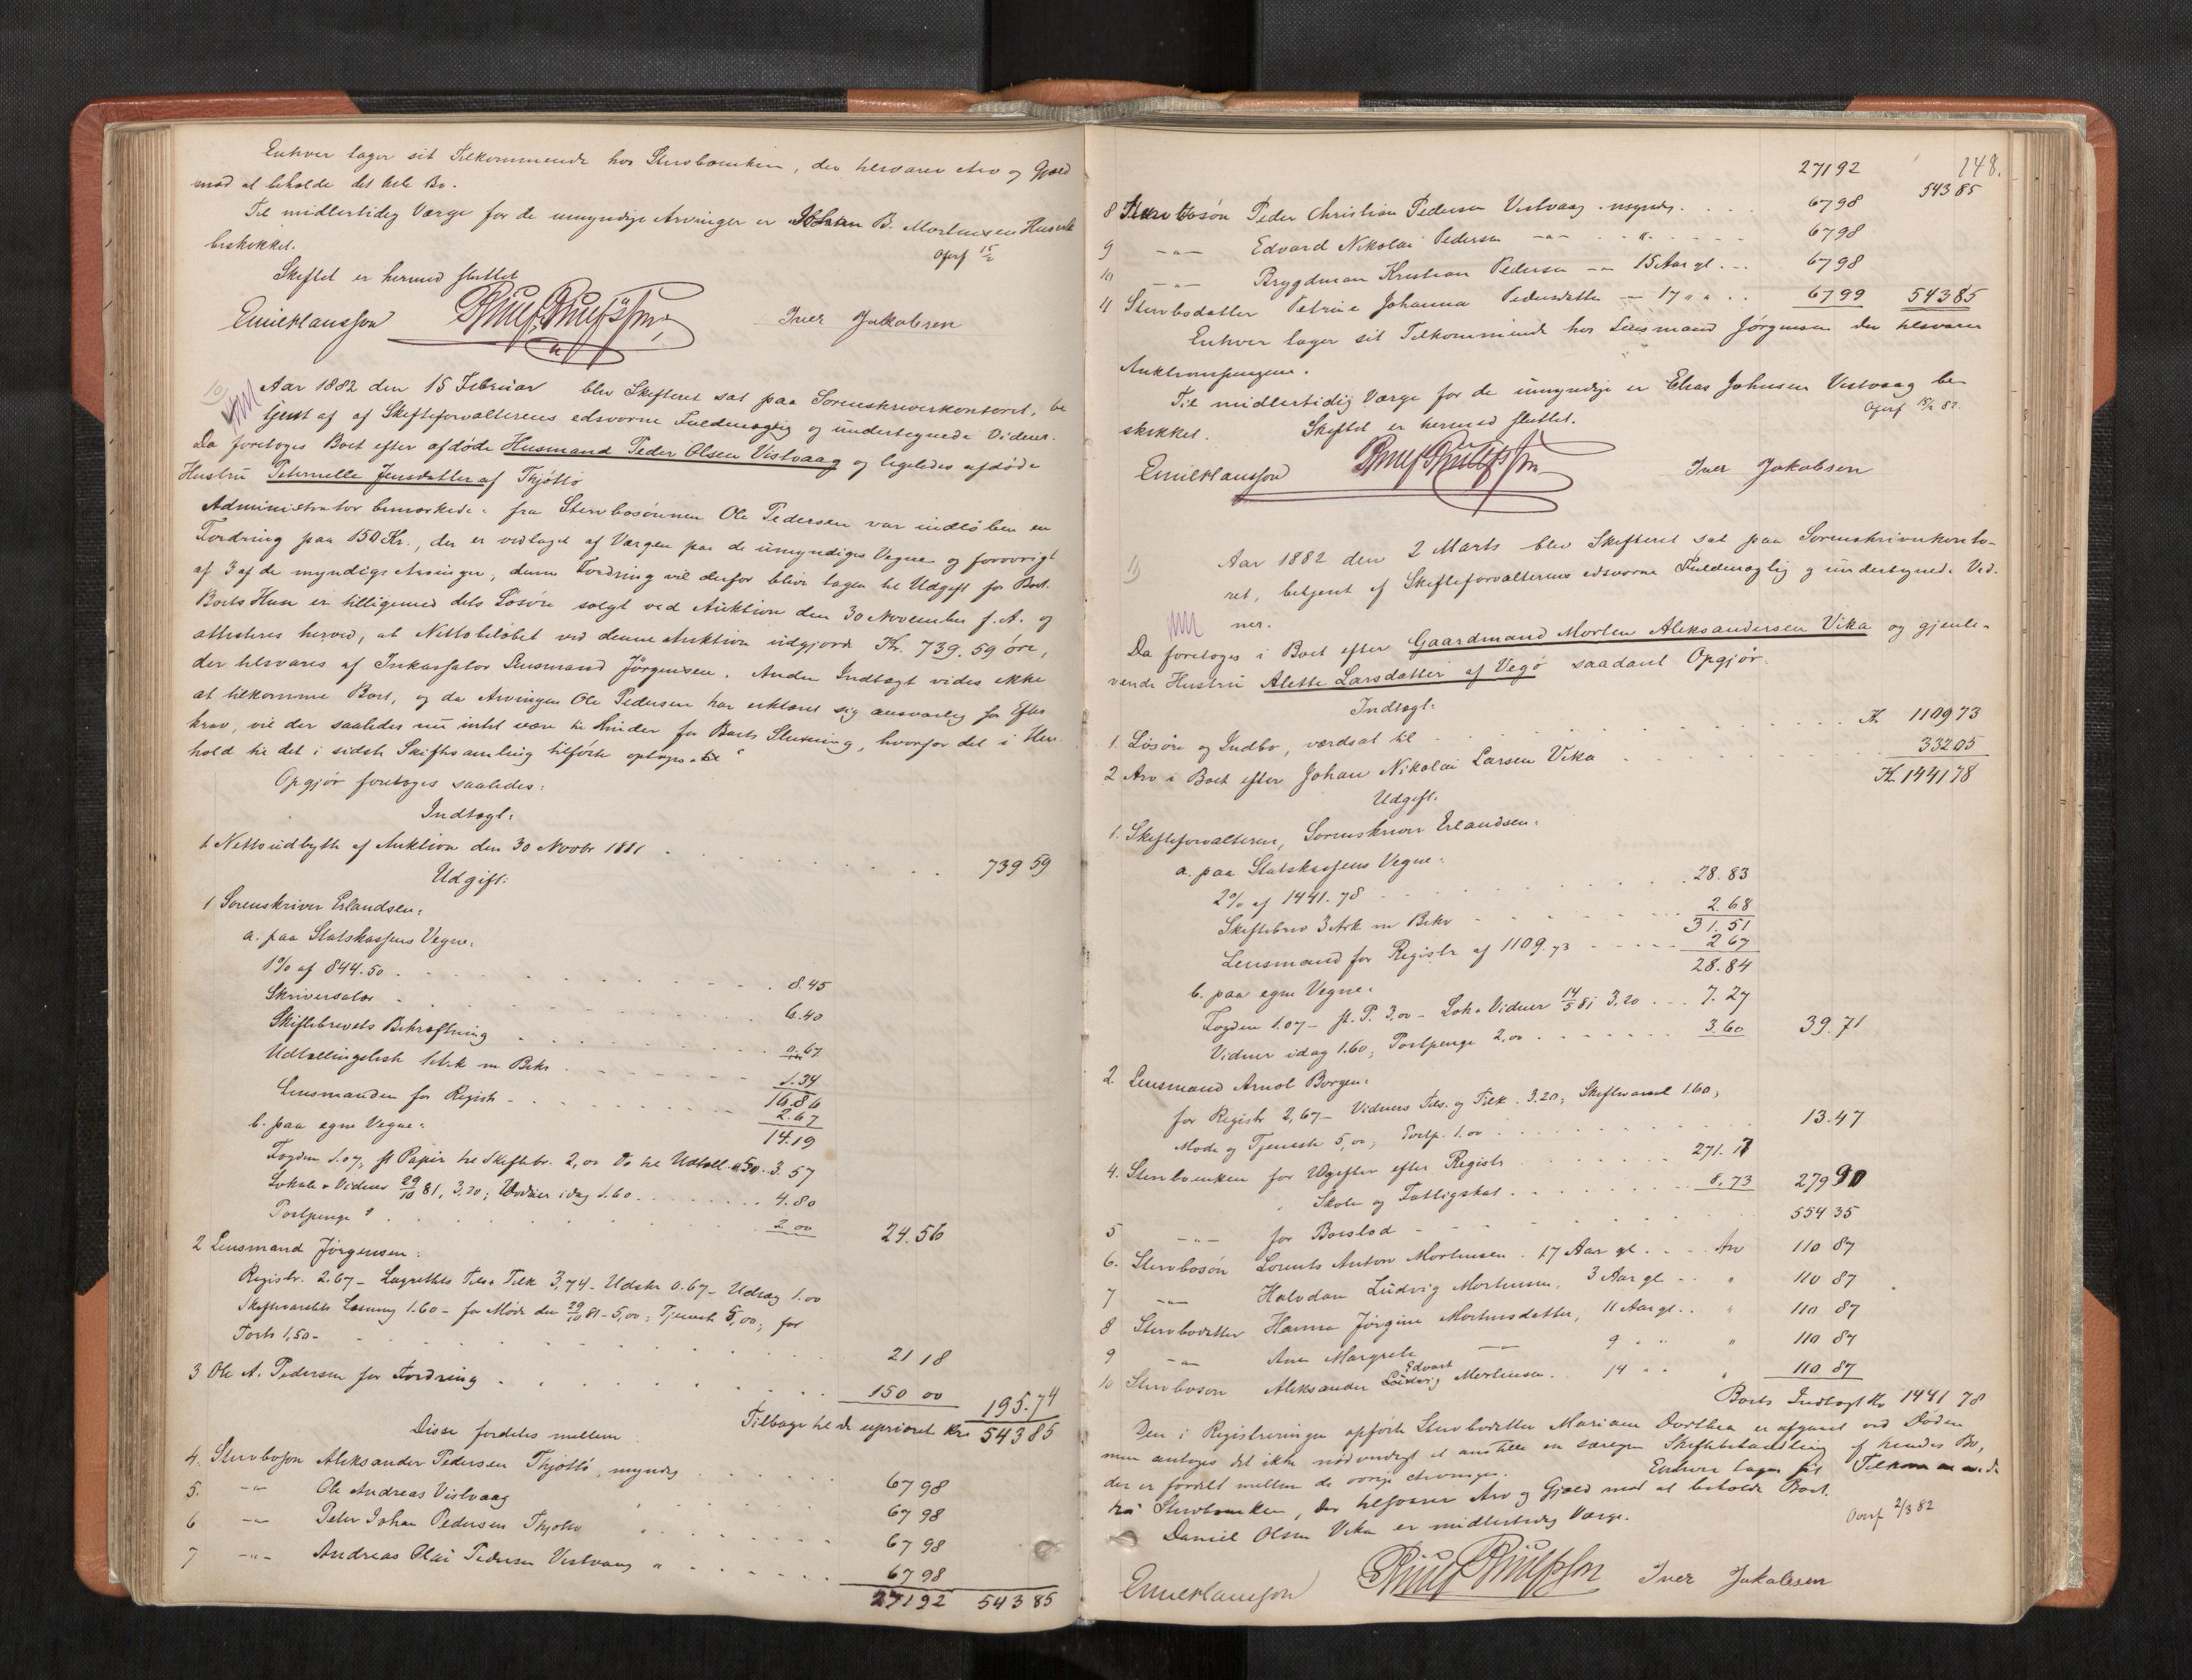 Enhver tager sit Tilkommende hos Stervboenken, der tilsvarer Arv og Gjæld
mod at beholde det hele Bo.
Til midlertidig Værge for de umyndige Arvinger er Johan B. Mortensen Husvik
beskikket.
Opf 15/2
Skiftet er hermed sluttet
Iver Jakobsen
10)
Aar 1882 den 15 Februar blev Skifteret sat paa Sorenskriverkontoret, be
tjent af af Skifteforvalterens edsvorne Fuldmægtig og undertegnede Vidner.
Da foretoges Boet efter afdøde Husmand Peder Olsen Vistvaag og ligeledes afdøde
Hustru Peternelle Jensdatter af Thjøttø
Administrator bemærkede: fra Stervbosønnen Ole Pedersen var indløben en
Fordring paa 150 Kr., der er vedtaget af Værgen paa de umyndiges Vegne og forøvrigt
af 3 af de myndige Arvinger, denne Fordring vil derfor blive tagen til Udgift for Boet.
Boets Huse er tilligemed dets Løsøre solgt ved Auktion den 30 November f. A. og
attesteres herved, at Nettobeløbet ved denne Auktion udgjorde Kr. 739.59 øre,
der tilsvares af Inkassator Lensmand Jørgensen. Anden Indtægt vides ikke
at tilkomme Boet, og da Arvingen Ole Pedersen har erklæret sig ansvarlig for Efter
krav, vil der saaledes nu intet være til Hinder for Boets Slutning, hvorfor det i Hen
hold til det i sidste Skiftesamling tilførte optages
Opgjør foretoges saaledes:
Indtægt:
1 Nettoudbytte af Auktion den 30 Novbr 1881 . . . 739 59
Udgift:
1 Sorenskriver Erlandsen:
a. paa Statskassens Vegne:
1% af 844.50 . . . 8.45
Skriversalær . . . 6.40
Skiftebrevets Bekræftning . . . 0.67
Udtællingsliste 1 Ark m Bekr . . . 1.34
16.86
Lensmanden for Registr . . . 2.67
14.19
b. paa egne Vegne:
Fogden 1.07, st Papir til Skiftebr. 2,00 Do til Udtæll. 0.50. 3.57
Lokale & Vidner 29/10 81, 3.20; Vidner idag 1.60 . . . 4.80
Postpenge . . . 2 00 24.56
2 Lensmand Jørgensen:
Registr. 2.67 - Lagrettets Tils & Tilk 3,74 - Udskr 0.67 - Udlæg 1.00
Skiftevarslets Læsning 1.60 - for Møde den 29/10 81 - 5,00; Tjeneste 5,00; for
Porto 1,50 - . . . 21 18
3 Ole A. Pedersen for Fordring . . . 150 00 195.74
Tilbage til de uprioret Kr 543 85
Disse fordeles mellem
4. Stervbosøn Aleksander Pedersen Thjøttø, myndig . . . 67 98
5. -"- Ole Andreas Vistvaag . . . 67 98
6 -"- Peter Johan Pedersen Thjøttø . . . 67 98
7 -"- Andreas Olai Pedersen Vistvaag " . . . 67 98
271 92 543 85
148.
271 92 543 85
8 Stervbosøn Peder Christian Pedersen Vistvaag myndig . . . 67 98
9 -"- Edvard Nikolai Pedersen -"- . . " . . . 67 98
10 -"- Brygdman Kristian Pedersen -"- 15 Aar gl. . . 67 98
11 Stervbodatter Petrine Johanna Pedersdatter -"- 17 " " . . 67 99 543 85
Enhver tager sit Tilkommende hos Lensmand Jørgensen der tilsvarer
Auktionspengene.
Til midlertidig Værge for de umyndige er Elias Johnsen Vistvaag be
skikket.
Opf 15/2 82.
Skiftet er hermed sluttet.
Iver Jakobsen
11)
Aar 1882 den 2 Marts blev Skifteret sat paa Sorenskriverkonto-
ret, betjent af Skifteforvalterens edsvorne Fuldmægtig og undertegnede Vid-
ner.
Da foretoges i Boet efter Gaardmand Morten Aleksandersen Vika og gjenle-
vende Hustru Alette Larsdatter af Vegø saadant Opgjør.
Indtægt:
1. Løsøre og Indbo, værdsat til . . . Kr 1109 73
2 Arv i Boet efter Johan Nikolai Larsen Vika . . . 332 05
Kr 1441 78
Udgift:
1. Skifteforvalteren, Sorenskriver Erlandsen:
a. paa Statskassens Vegne:
2% af 1441.78 . . . 28.83
Skiftebrev 3 Ark m Bekr . . . 2.68
31.51
Lensmand for Registr af 1109.73 . . . 2 67
28.84
b. paa egne Vegne:
Fogden 1.07 - st. P. 3,00 - Lok & Vidner 14/5 81 3,20 . . . 7.27
Vidner idag 1.60, Postpenge 2,00 . . . 3.60 39.71
2. Lensmand Arnol Borgen:
for Registr 2,67 - Vidners Tils. og Tilk. 3.20; Skiftevarsel 1.60,
Møde og Tjeneste 5,00; Postp. 1.00 . . . 13.47
4. Stervboenken for Udgifter efter Registr . . . 271.17
" Skole og Fattigskat . . . 8.73 279 90
5 -"- for Boeslod . . . 554 35
6. Stervbosøn Lorents Anton Mortensen . 17 Aar gl. . . Arv 110 87
7 -"- Halvdan Ludvig Mortensen, 3 Aar gl . . " 110 87
8 Stervbodatter Hanna Jørgine Mortensdatter, 11 Aar gl. . " 110 87
9 -"- Ane Margrete -"- 9 " " " 110 87
10 Stervbosøn Aleksander Edvart Mortensen . . 14 " " " 110 87
Boets Indtægt Kr 1441 78
Den i Registreringen opførte Stervbodatter Mariane Dorthea er afgaaet ved Døden
men antages det ikke nødvendigt at anstille en særegen Skiftebehandling af hendes Bo,
der er fordelt mellem de øvrige Arvinger. Enhver tager sit Tilkommende
hos Stervboenken, der tilsvarer Arv og Gjæld mod at beholde Boet.
Daniel Olsen Vika er midlertidig Værge.
Overf 2/3 82
Iver Jakobsen